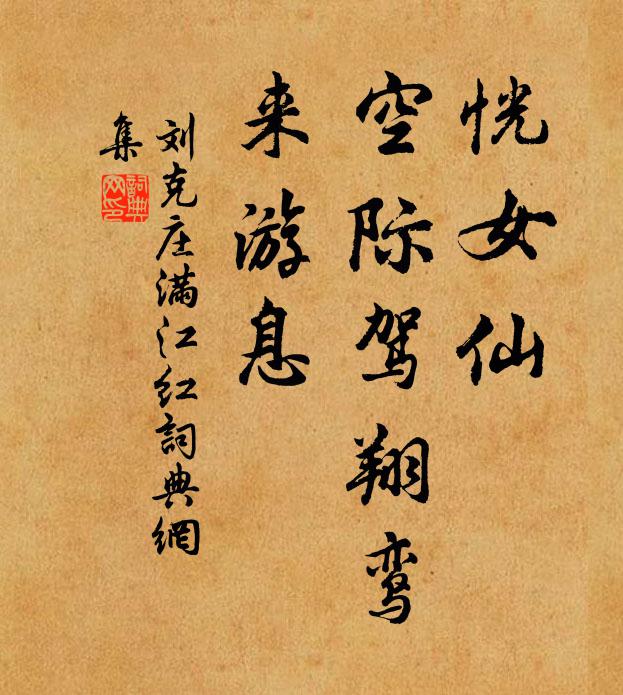 恍女仙
空际驾翔鸾
来游息
刘克庄满江红詞典網
集
詞典网印